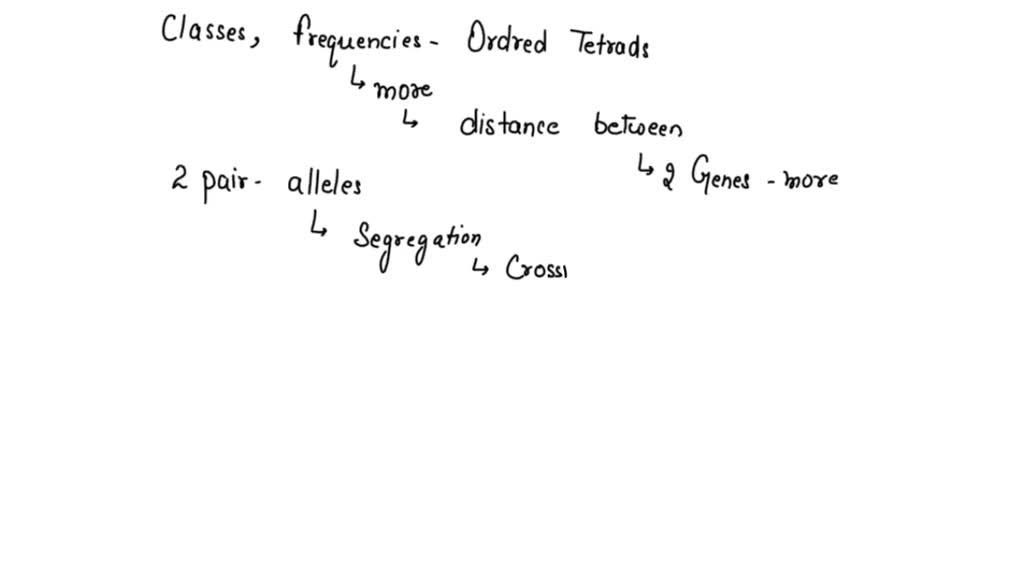 Classes, frequencies - Ordred Tetrads
↳ more
↳ distance between
↳ 2 Genes - more
2 pair - alleles
↳ Segregation
↳ Crossi